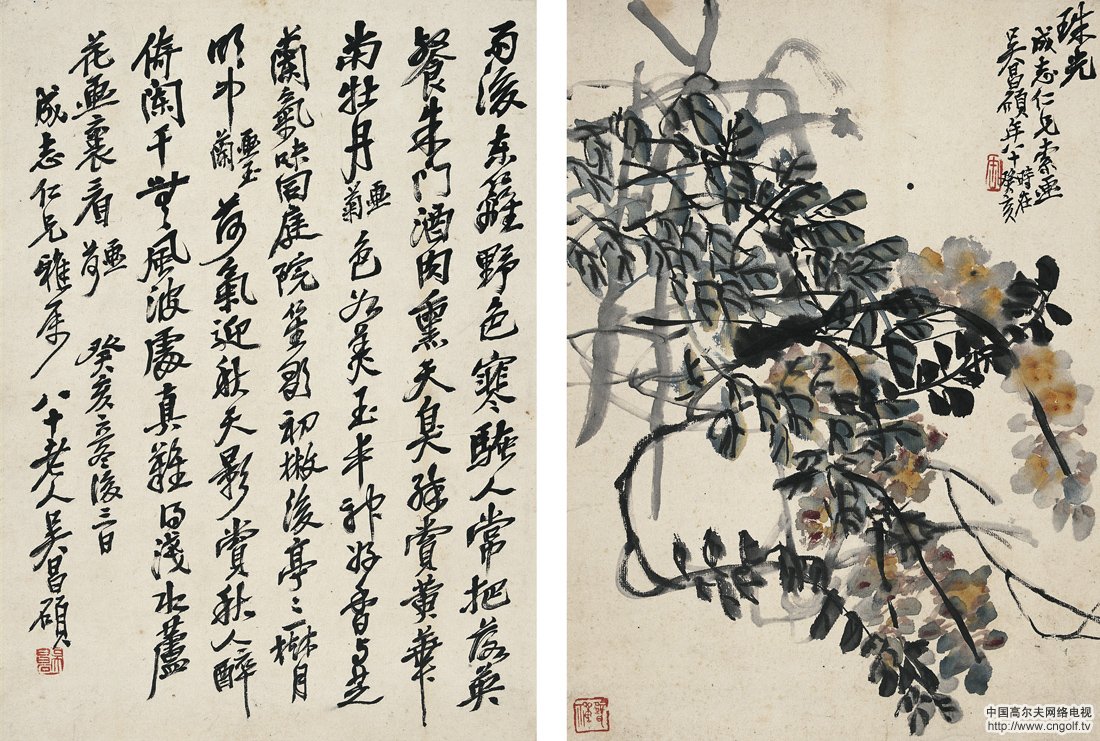 雨後東籬野色寒騷人常把落英
餐朱門酒肉熏天臭孫賞黃華
當牡丹
畫菊
色如美玉半神好香與芝
蘭氣味同庭院笙歌初撤後亭亭楙月
明中
畫玉蘭
荷氣迎秋天影賞秋人醉
倚闌干無風波處真難得淺水蘆
花畫裏看
畫荷
癸亥立冬後三日
成志仁兄雅屬
八十老人吳昌碩
珠光
成志仁兄索畫
吳昌碩年八十
時在癸亥
中国高尔夫网络电视
http://www.cngolf.tv